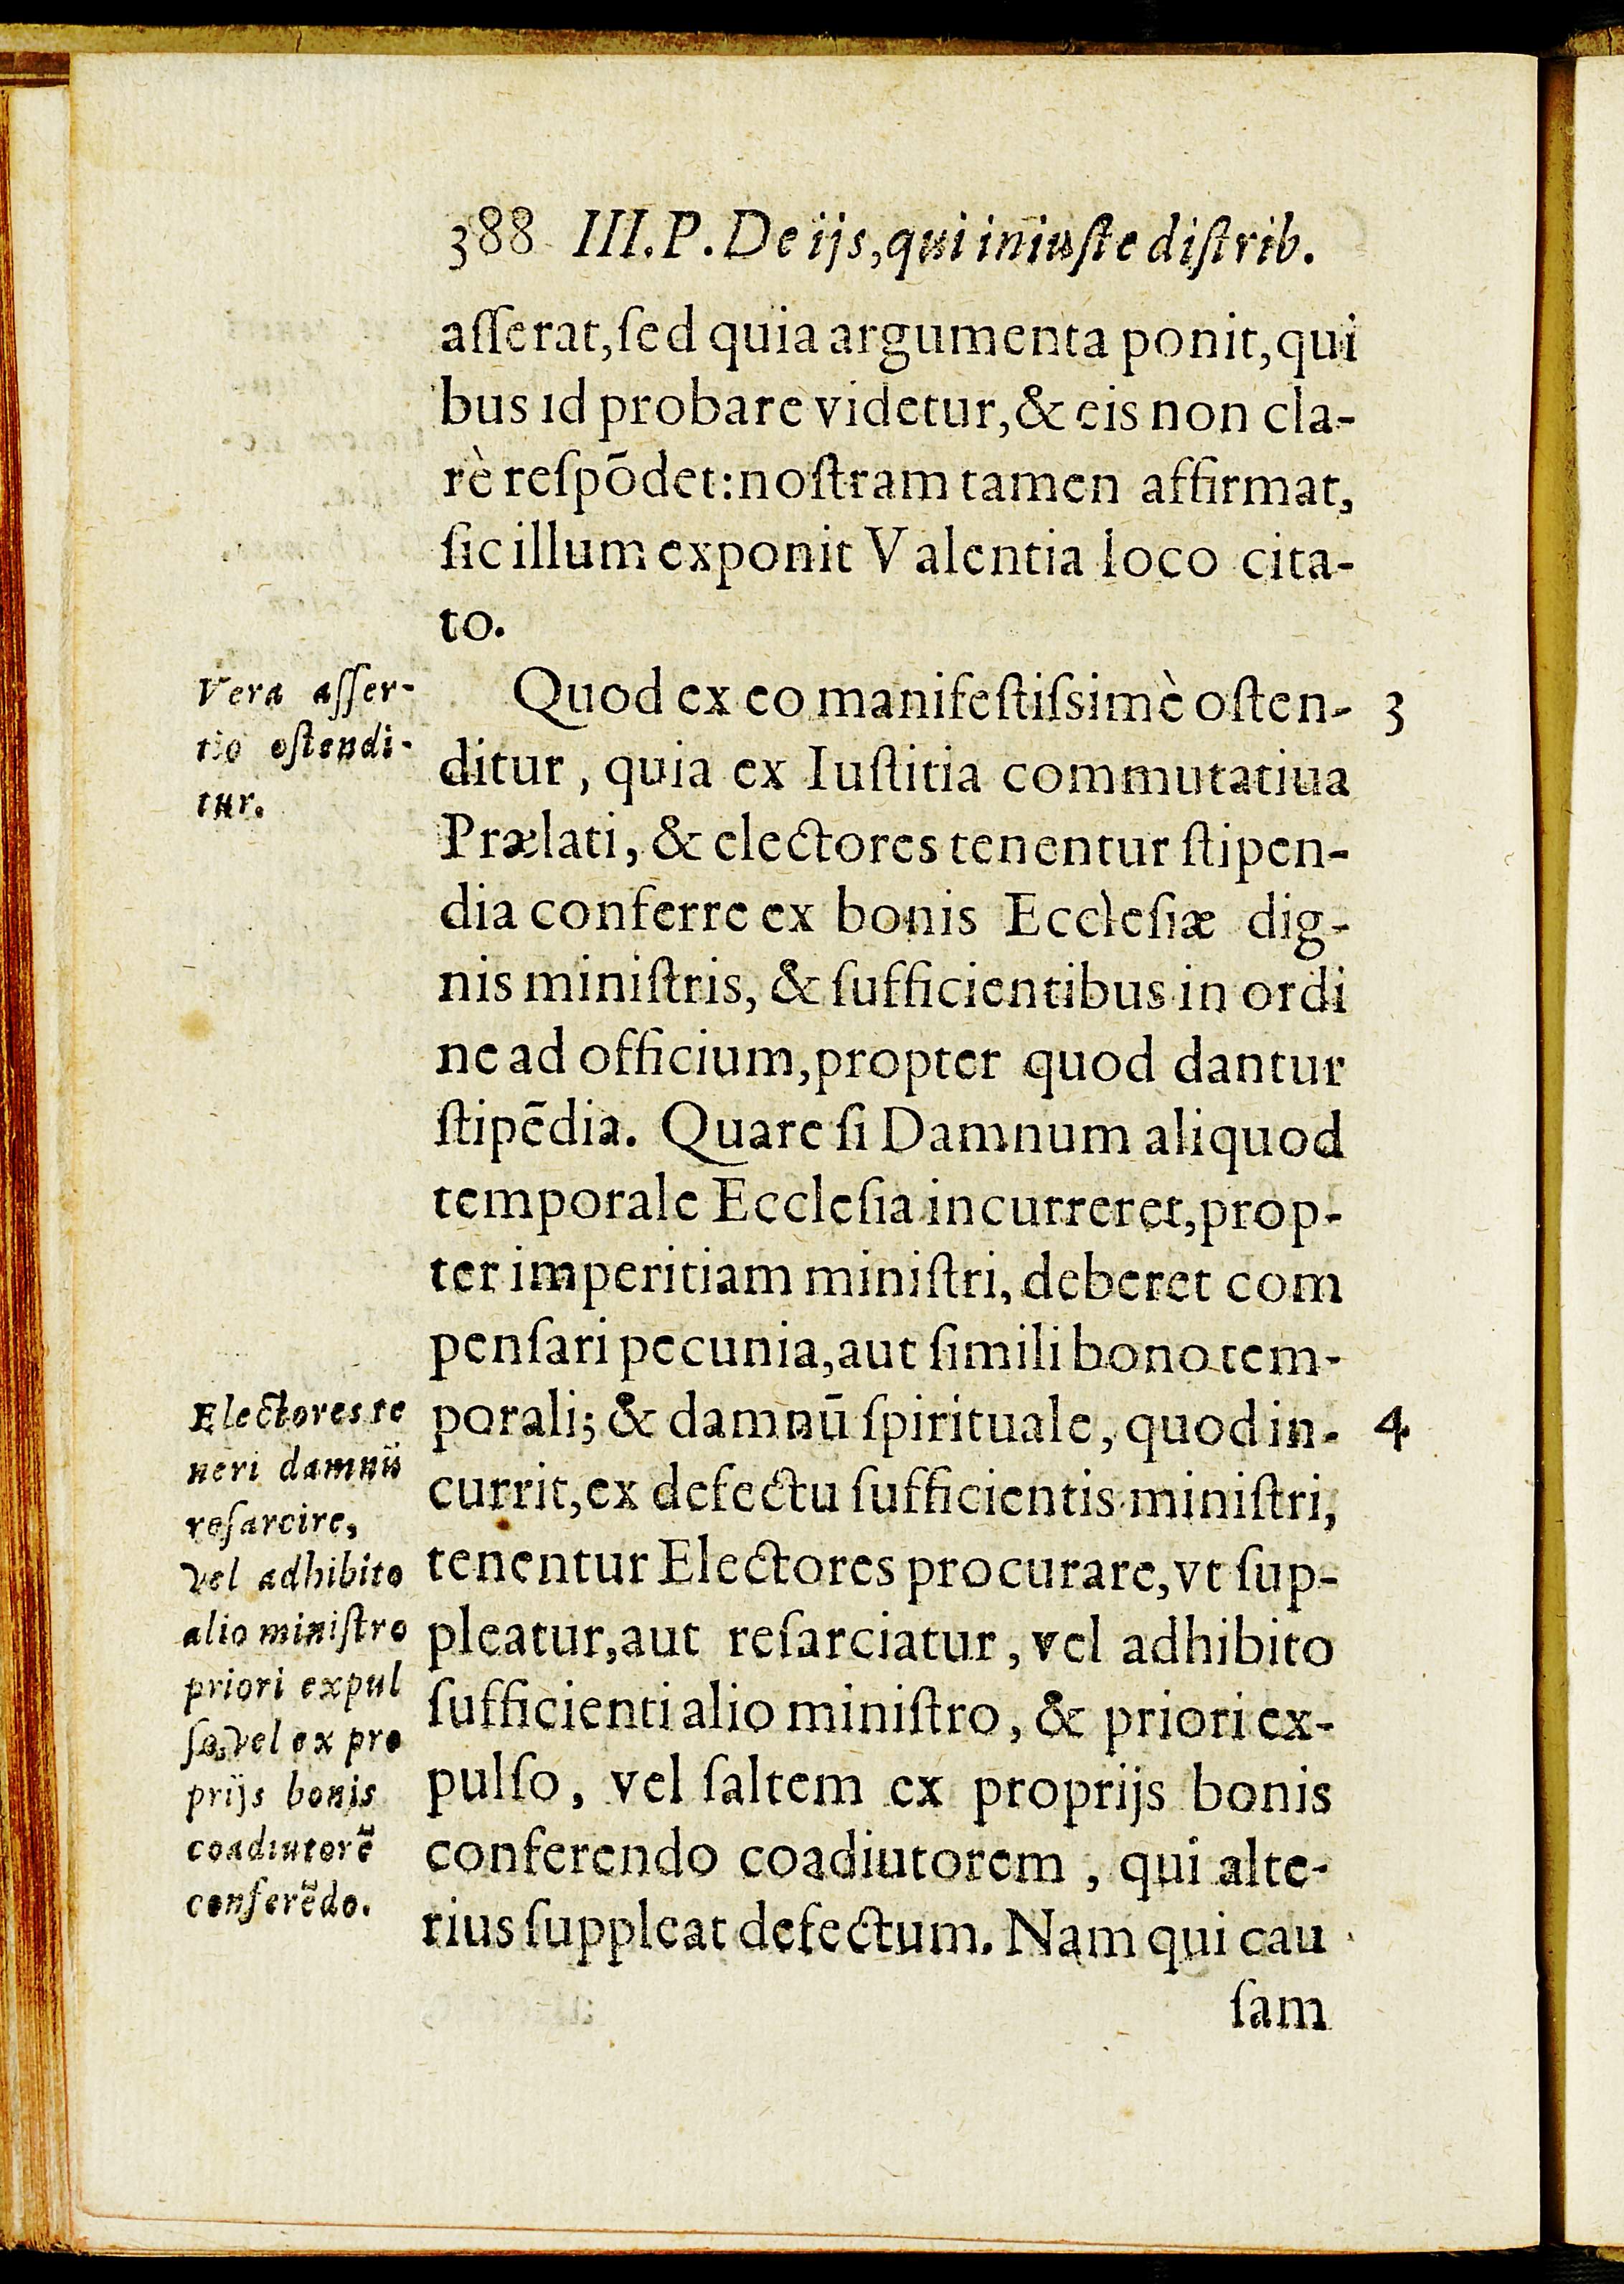 388 III.P. De ijs, qui iniuſte diſtrib.
aſſerat, ſed quia argumenta ponit, qui
bus id probare videtur, & eis non cla-
rè reſpõdet: noſtram tamen affirmat,
ſic illum exponit Valentia loco cita-
to.
Vera aſſer-
tio oſtendi-
tur.
Quod ex eo manifeſtiſsimè oſten- 3
ditur, quia ex Iuſtitia commutatiua
Prælati, & electores tenentur ſtipen-
dia conferre ex bonis Eccleſiæ dig-
nis miniſtris, & ſufficientibus in ordi
ne ad officium, propter quod dantur
ſtipẽdia. Quare ſi Damnum aliquod
temporale Eccleſia incurreret, prop-
ter imperitiam miniſtri, deberet com
penſari pecunia, aut ſimili bono tem-
porali; & damnũ ſpirituale, quod in- 4
currit, ex defectu ſufficientis miniſtri,
tenentur Electores procurare, vt ſup-
pleatur, aut reſarciatur, vel adhibito
ſufficienti alio miniſtro, & priori ex-
pulſo, vel ſaltem ex proprijs bonis
conferendo coadiutorem, qui alte-
rius ſuppleat defectum. Nam qui cau
ſam
Electores te
neri damnũ
reſarcire,
vel adhibito
alio miniſtro
priori expul
ſo, vel ex pro
prijs bonis
coadiutorẽ
conferẽdo.